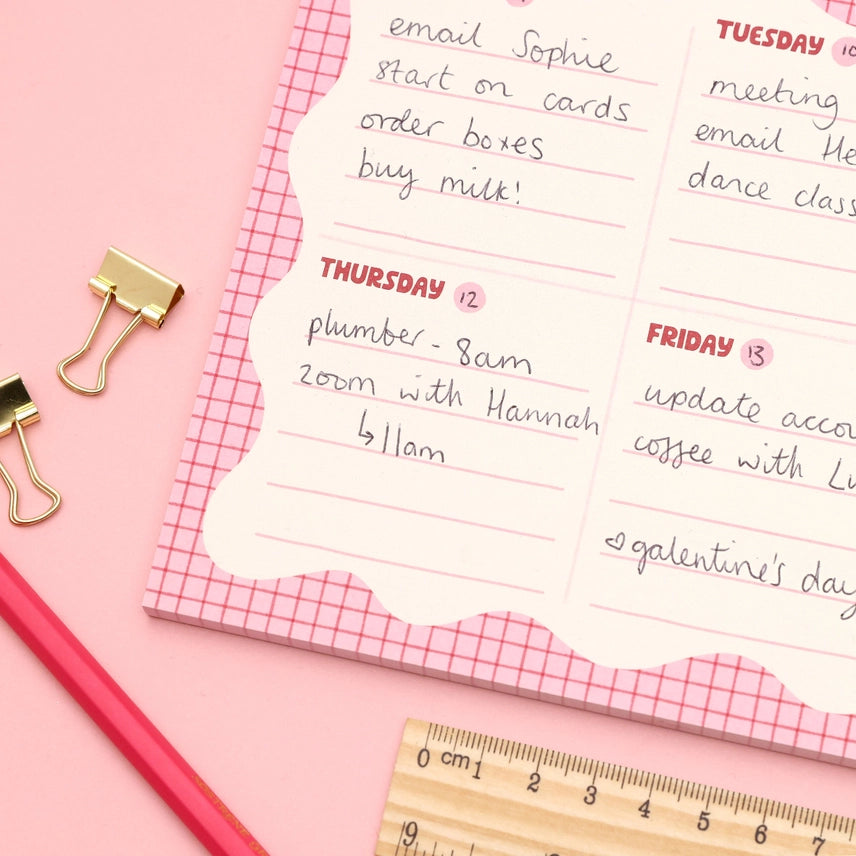 email Sophie
start on cards
order boxes
buy milk!
TUESDAY 10
meeting
email
dance
THURSDAY 12
plumber - 8am
zoom with Hannah
↳ 11am
FRIDAY 13
update
coffee with
♡ galentine's day
0 cm 1 2 3 4 5 6 7
9